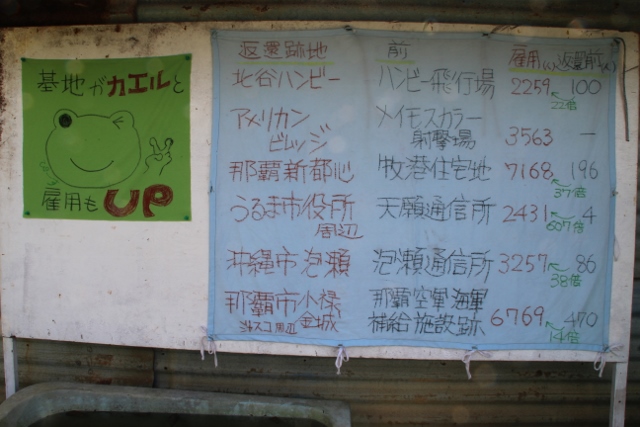 基地がカエルと
雇用もUP
返還跡地 前 雇用(人) 返還前(人)
北谷ハンビー ハンビー飛行場 2259 100
22倍
アメリカン
ビレッジ
メイモスカラー
射撃場 3563 ー
那覇新都心 牧港住宅地 7168 196
37倍
うるま市役所
周辺
天願通信所 2431 4
607倍
沖縄市泡瀬 泡瀬通信所 3257 86
38倍
那覇市小禄
金城
那覇空軍海軍
補給施設跡 6769 470
14倍